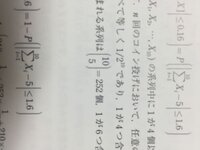 X̄| ≤0.16) = P(|∑Xᵢ−5| ≤1.6)
X₂, …, X₁₀) の系列中に1が4個以
n回のコイン投げにおいて, 任意
べて等しく 1/2¹⁰ であり, 1が4つ含
まれる系列は (10 5) = 252個, 1が6つ含
6) = 1−P(|∑Xᵢ−5| ≤1.6)